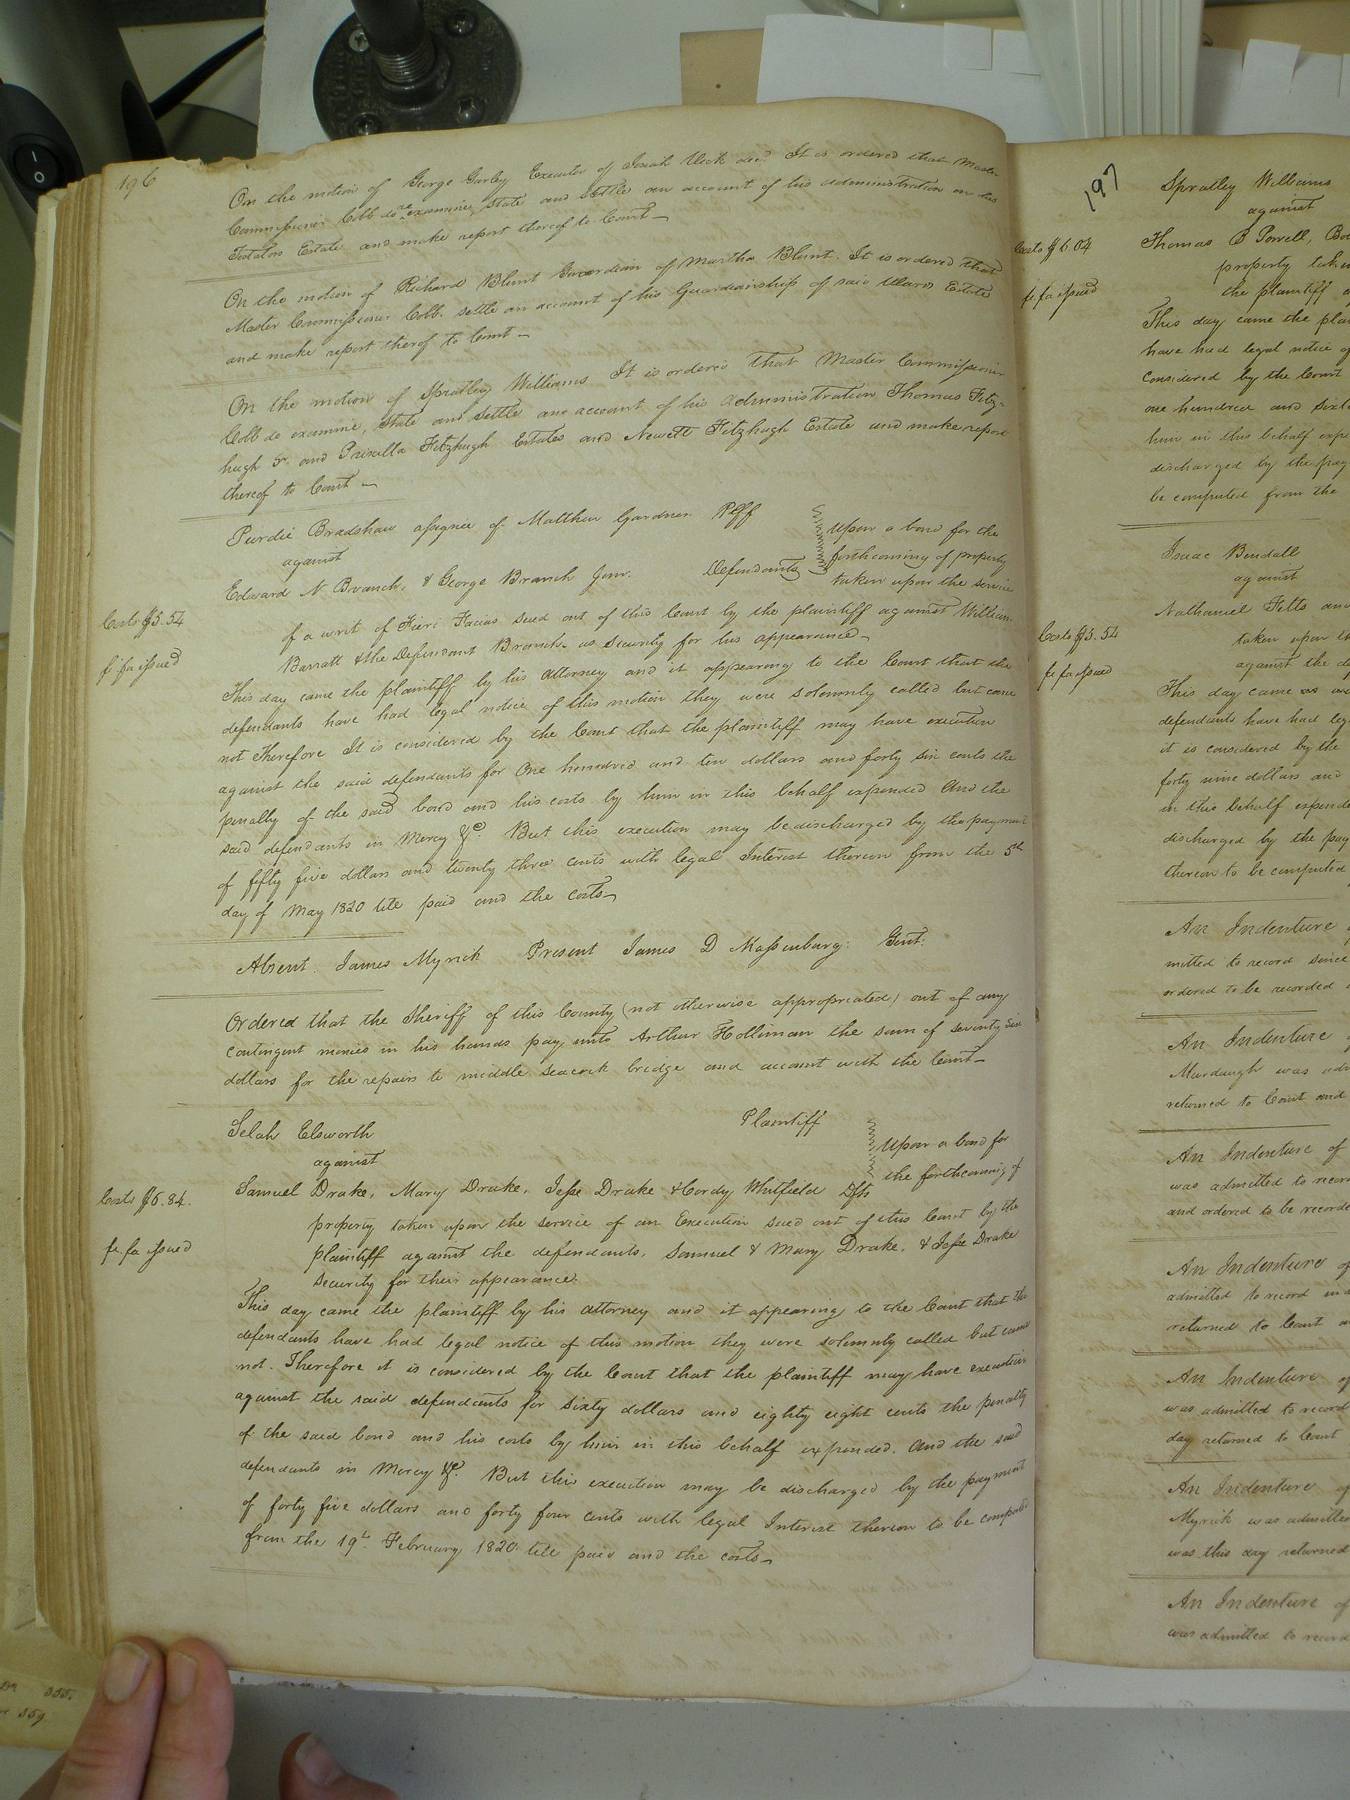 196
On the motion of George Gurley Executor of Josiah Vick decd. It is ordered that Master
Commissioner Cobb do examine, State and Settle an account of his administration on his
Testators Estate and make report thereof to Court
On the motion of Richard Blunt Guardian of Martha Blunt. It is ordered that
Master Commissioner Cobb. settle an account of his Guardianship of said Wards Estate
and make report therof to Court
On the motion of Spratley Williams It is ordered that Master Commissioner
Cobb do examine, State and settle an account of his administration Thomas Fitz-
hugh Sr. and Priscilla Fitzhugh Estates and Newett Fitzhugh Estate and make report
thereof to Court
Purdie Bradshaw assignee of Matthew Gardner Plff
against
Edward N Branch, & George Branch Junr. Defendants
Upon a bond for the
forthcoming of property
taken upon the service
Costs $5.54
fi fa issued
of a writ of Fieri Facias sued out of this Court by the plaintiff against William
Barratt & the Defendant Branch as security for his appearance
This day came the plaintiff by his attorney and it appearing to the Court that the
defendants have had legal notice of this motion they were solemnly called but came
not Therefore It is considered by the Court that the plaintiff may have execution
against the said defendants for One hundred and ten dollars and forty six cents the
penalty of the said bond and his costs by him in this behalf expended And the
said defendants in Mercy &c. But this execution may be discharged by the payment
of fifty five dollars and twenty three cents with legal Interest thereon from the 5th
day of May 1820 till paid and the costs
Absent James Myrick Present James D Massenburg Gent.
Ordered that the Sheriff of this County (not otherwise appropriated) out of any
contingent monies in his hands pay unto Arthur Holliman the sum of seventy
dollars for the repairs to middle Seacock bridge and account with the Court
Selah Elsworth Plaintiff
against
Samuel Drake, Mary Drake, Jesse Drake & Cordy Whitfield Dfts
Upon a bond for
the forthcoming of
Costs $6.84.
fi fa issued
property taken upon the service of an Execution sued out of this Court by the
plaintiff against the defendants, Samuel & Mary Drake, & Jesse Drake
Security for their appearance.
This day came the plaintiff by his attorney and it appearing to the Court that the
defendants have had legal notice of this motion they were solemnly called but came
not. Therefore it is considered by the Court that the plaintiff may have execution
against the said defendants for Sixty dollars and eighty eight cents the penalty
of the said bond and his costs by him in this behalf expended. And the said
defendants in Mercy &c. But this execution may be discharged by the payment
of forty five dollars and forty four cents with legal Interest thereon to be computed
from the 19th February 1820 till paid and the costs
197
Spratley Williams
against
Costs $6.04
Thomas B Powell,
property taken
fi fa issued
the plaintiff
This day came the
have had legal notice of
considered by the Court
one hundred and
him in this behalf
discharged by the
be computed from the
Isaac Bendall
against
Costs $5.54
Nathaniel Felts and
taken upon
fi fa issued
against the
This day came
defendants have had
it is considered by the
forty nine dollars and
in this behalf
discharged by the
thereon to be computed
An Indenture
mitted to record since
ordered to be recorded
An Indenture
Murdaugh was
returned to Court and
An Indenture of
was admitted to
and ordered to be
An Indenture of
admitted to record
returned to Court
An Indenture of
was admitted to record
day returned to Court
An Indenture of
Myrick was admitted
was this day returned
An Indenture of
was admitted to record